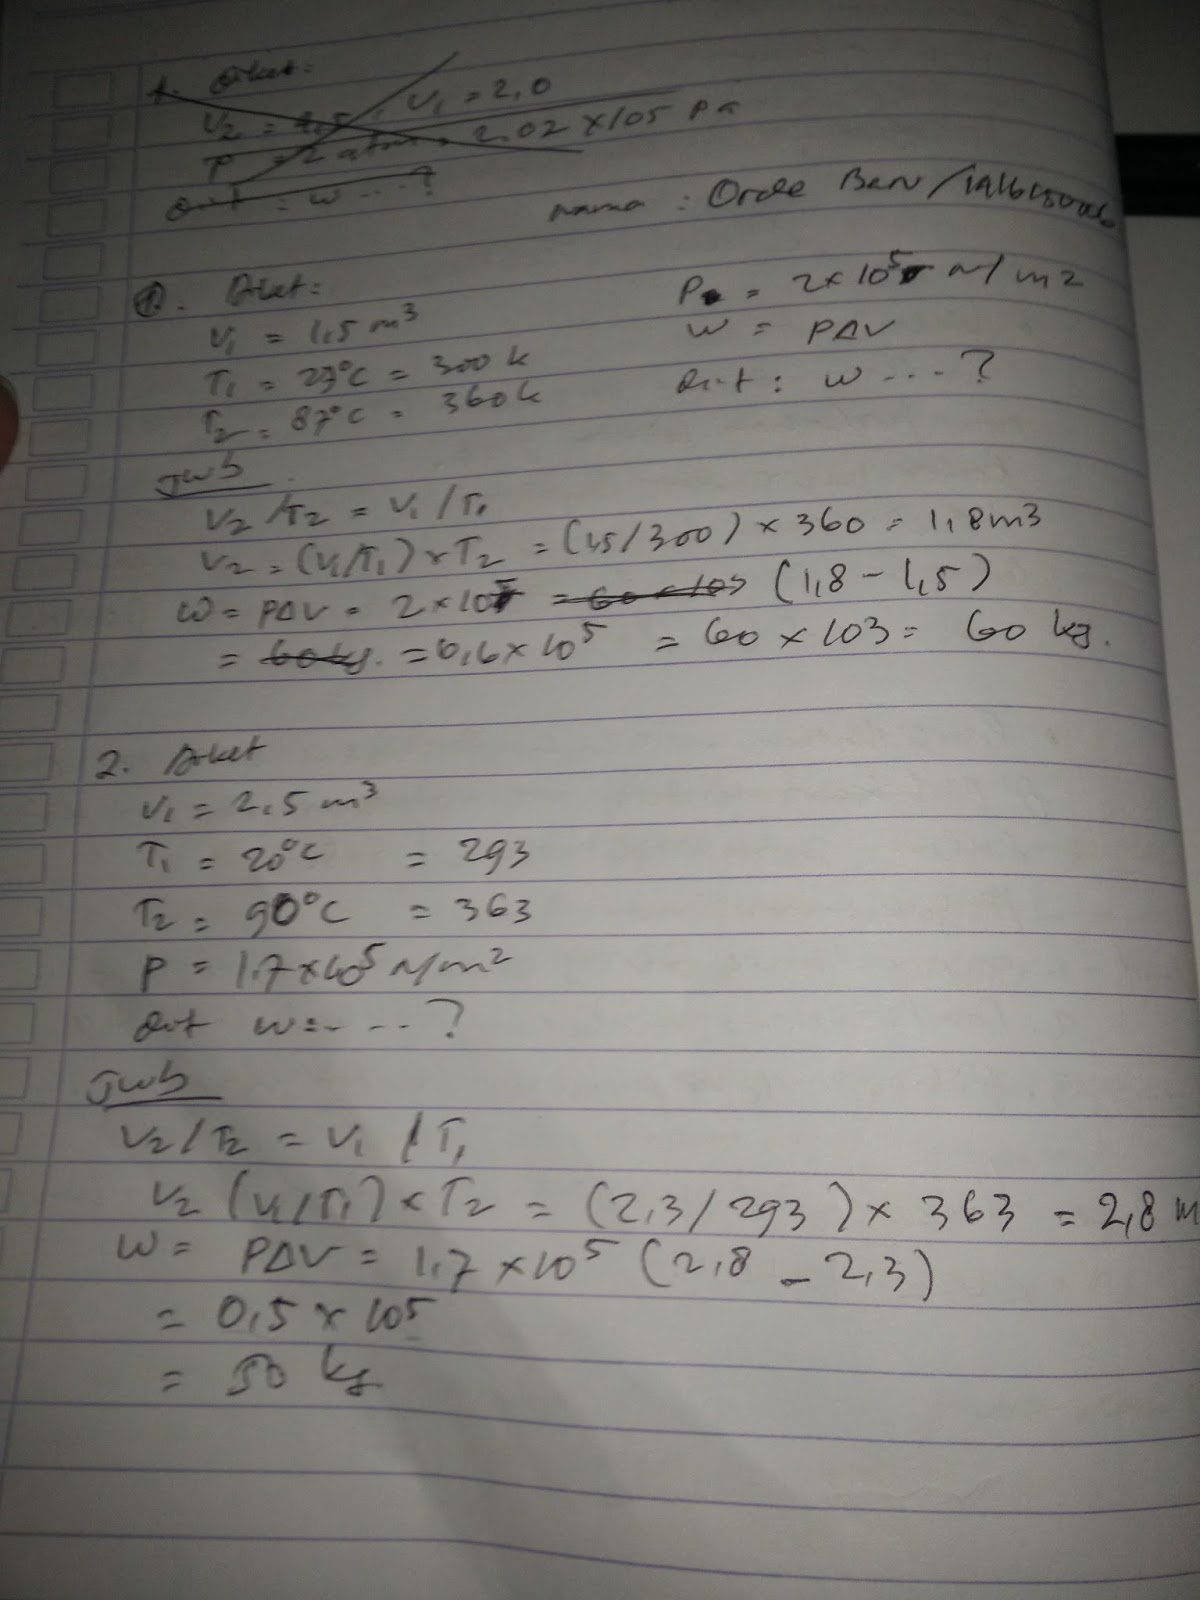 1. Diket:
V2 = 1,5 , V1 = 2,0
P = 2 atm = 2.02 × 105 Pa
Dit = W ...?
nama : Orde Baru /
1. Diket:
V1 = 1,5 m³
T1 = 27°C = 300 k
T2 = 87°C = 360 k
P = 2 × 10⁵ N/m2
W = PΔV
Dit : W ...?
Jwb
V2/T2 = V1/T1
V2 = (V1/T1) × T2 = (1,5/300) × 360 = 1,8 m3
W = PΔV = 2 × 10⁵ = 60 × 103 (1,8 - 1,5)
= 60 kj. = 0,6 × 10⁵ = 60 × 103 = 60 kj.
2. Diket
V1 = 2,5 m³
T1 = 20°C = 293
T2 = 90°C = 363
P = 1.7 × 10⁵ N/m²
Dit W = ...?
Jwb
V2/T2 = V1/T1
V2 (V1/T1) × T2 = (2,3/293) × 363 = 2,8 m
W = PΔV = 1,7 × 10⁵ (2,8 - 2,3)
= 0,5 × 10⁵
= 50 kj